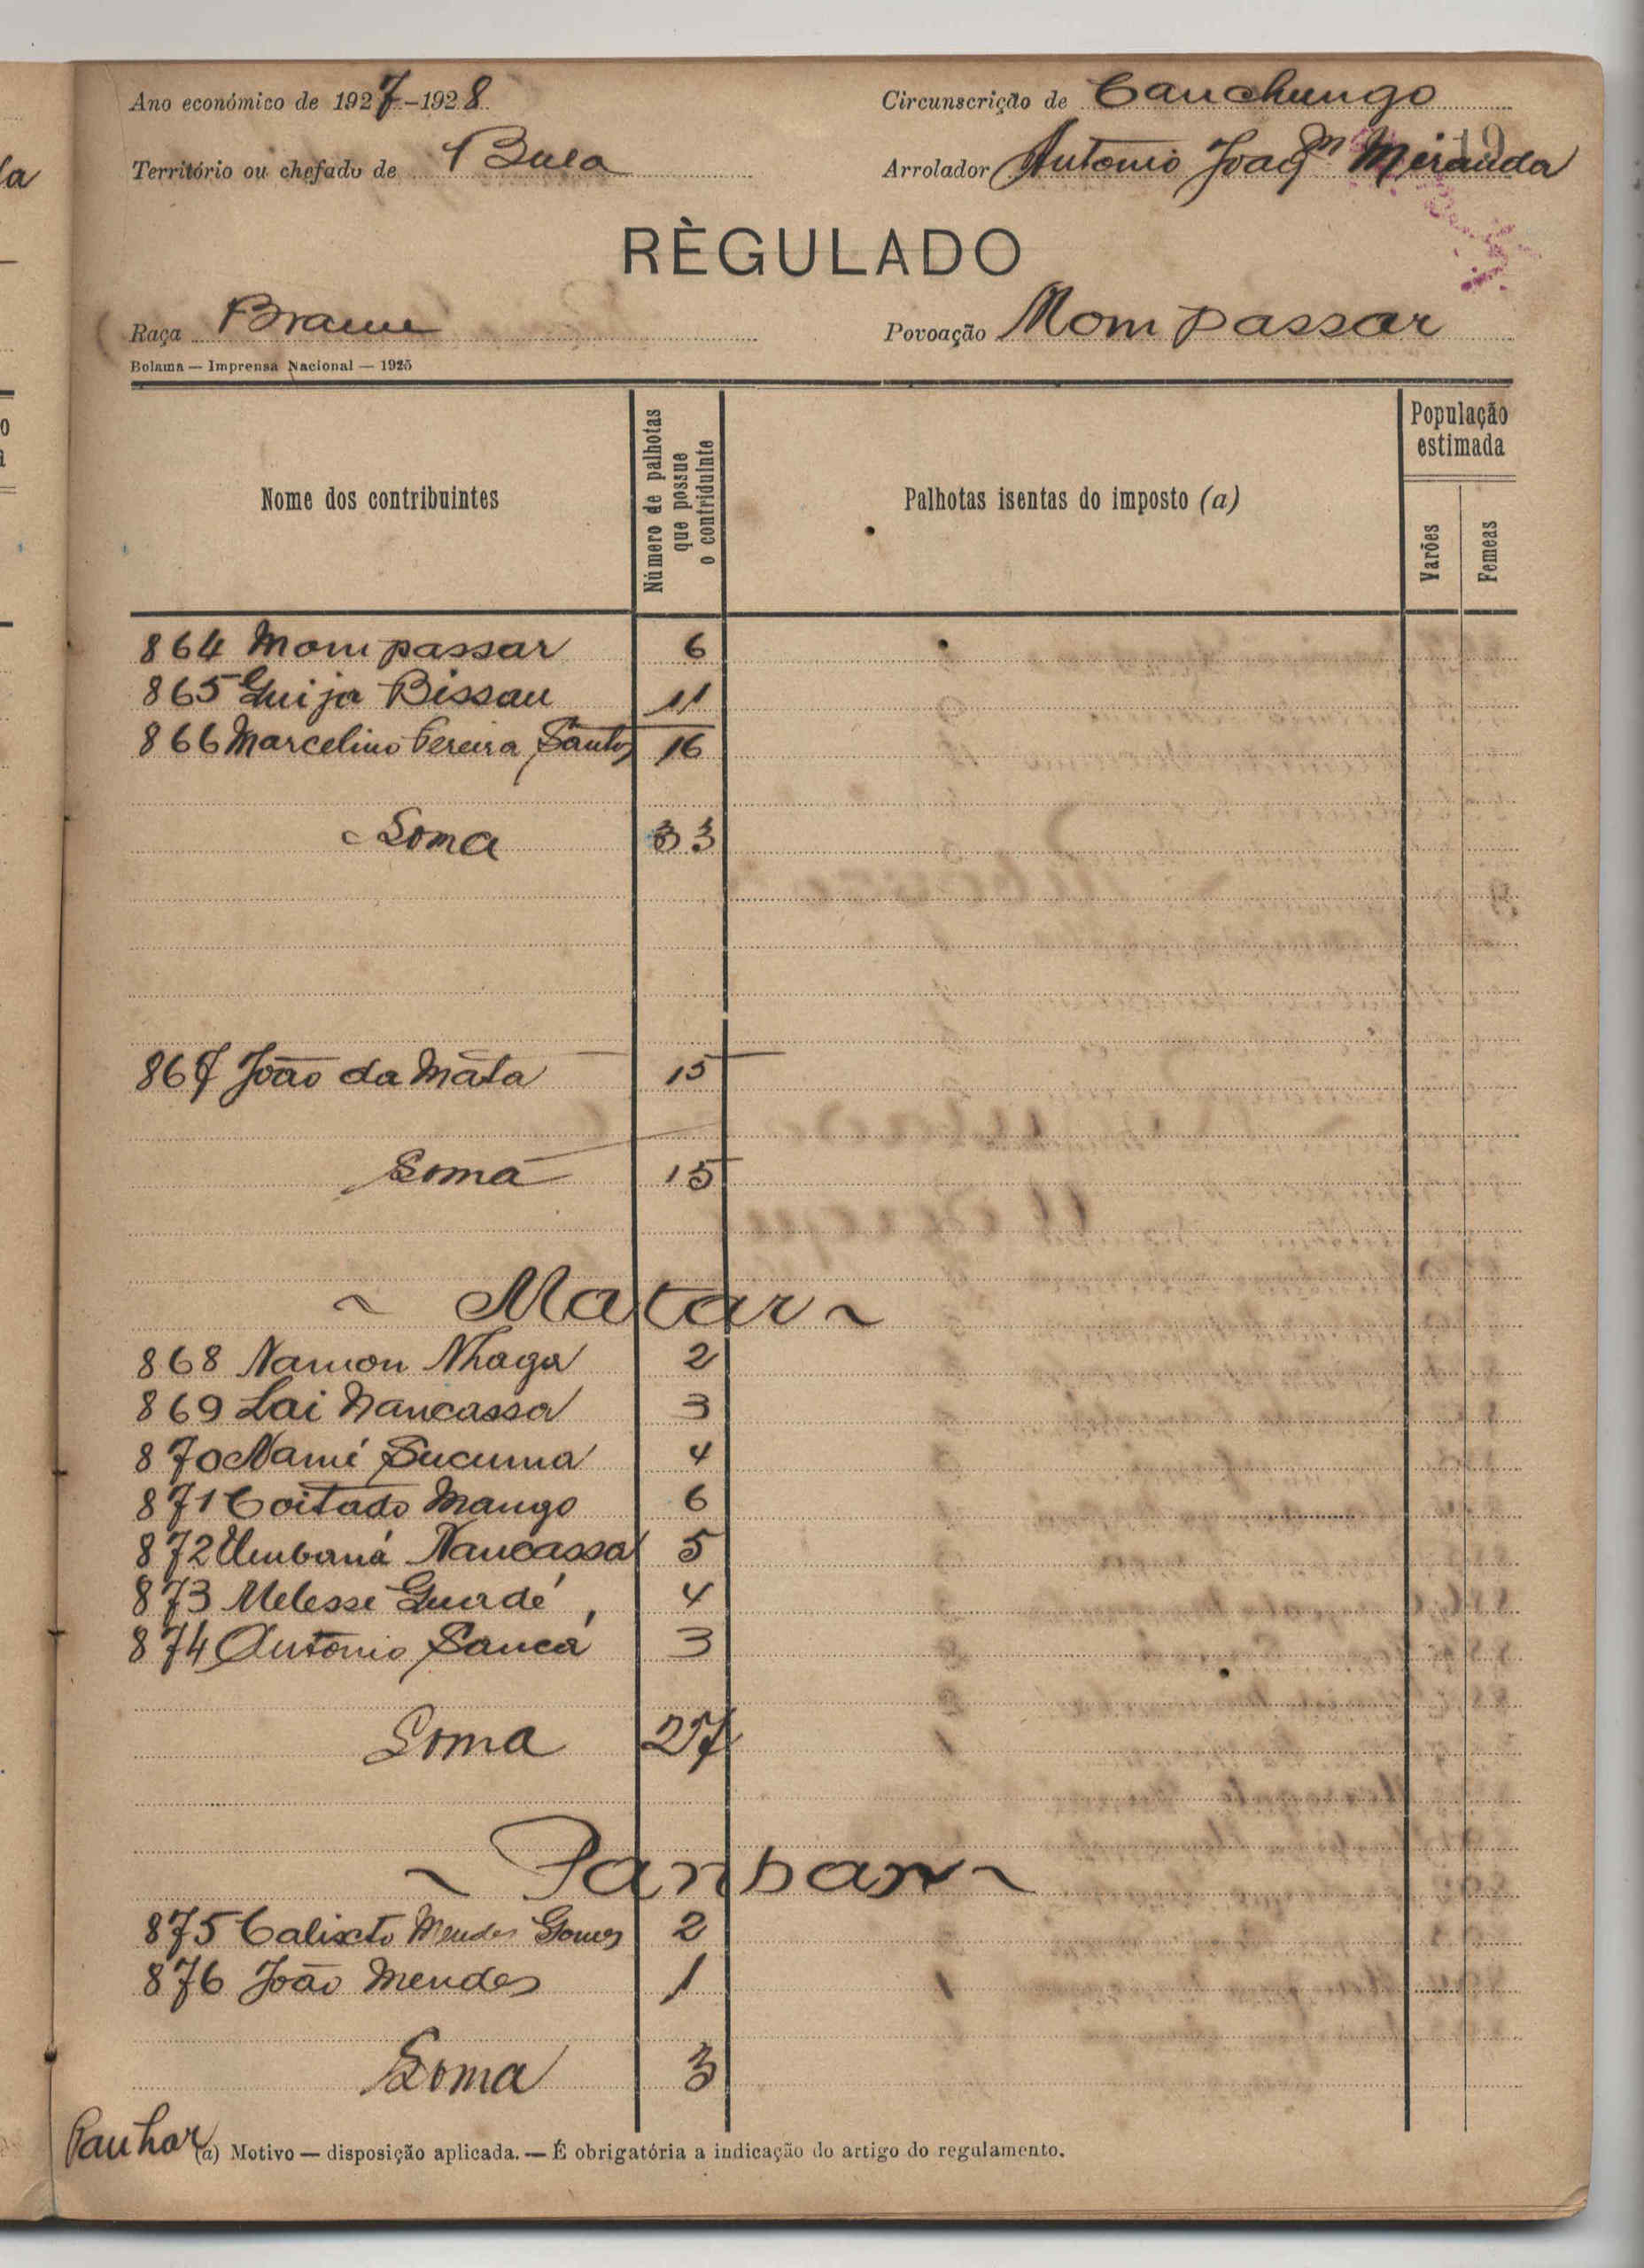 Ano económico de 1927-1928
Circunscrição de Canchungo
Território ou chefado de Bula
Arrolador Antonio Joaqm Miranda
19
RÈGULADO
Raça Brame
Povoação Mompassar
Bolama — Imprensa Nacional — 1925
Nome dos contribuintes
Número de palhotas que possue o contriduinte
Palhotas isentas do imposto (a)
População estimada
Varões
Femeas
864 Mompassar 6
865 Guija Bissau 11
866 Marcelino Pereira Santos 16
Soma 33
867 João da Mata 15
Soma 15
~ Matar ~
868 Namon Nhaga 2
869 Lai Nancassa 3
870 Nami Sucuma 4
871 Coitado Mango 6
872 Umbaná Nancassa 5
873 Melesse Guadé 4
874 Antonio Sanca 3
Soma 27
~ Panban ~
875 Calixto Mendes Gomes 2
876 João Mendes 1
Soma 3
(a) Motivo — disposição aplicada. — É obrigatória a indicação do artigo do regulamento.